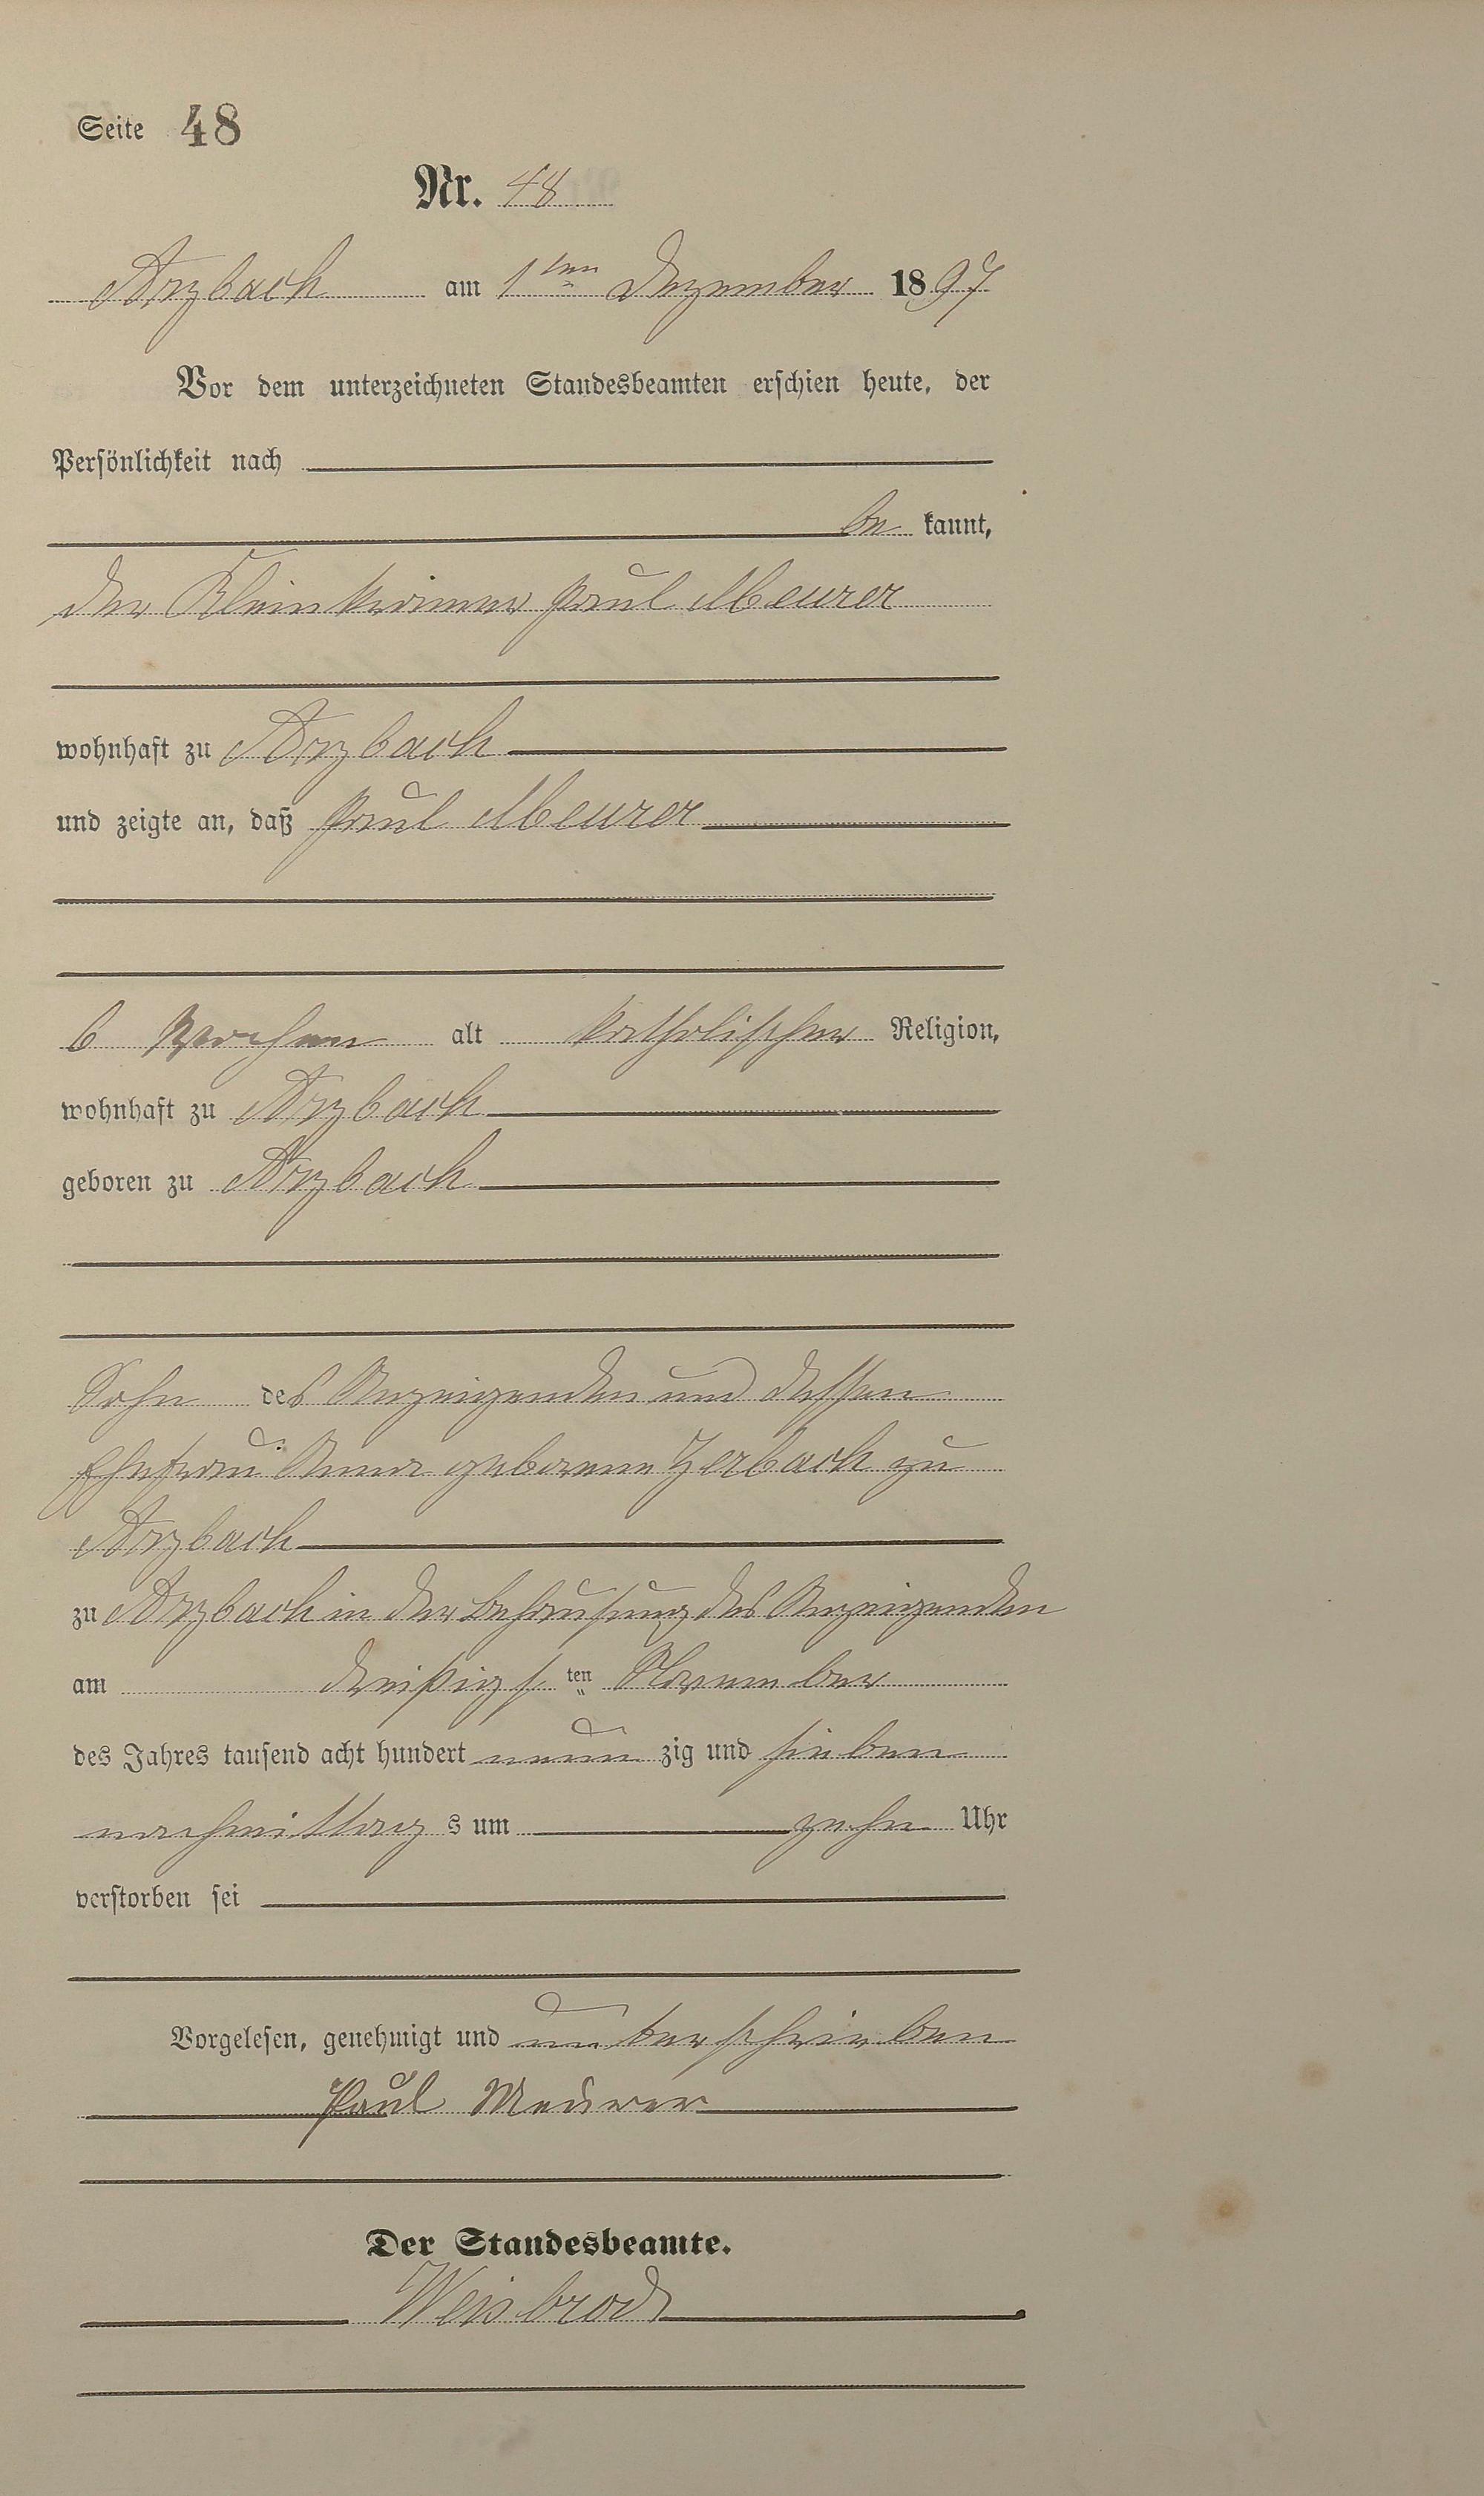 Seite 48
Nr. 48
Arzbach am 1ten Dezember 1897
Vor dem unterzeichneten Standesbeamten erschien heute, der
Persönlichkeit nach
be kannt,
der Kleinkrämer Paul Meurer
wohnhaft zu Arzbach
und zeigte an, daß Paul Meurer
6 Wochen alt katholischer Religion,
wohnhaft zu Arzbach
geboren zu Arzbach
Sohn des Anzeigenden und dessen
Ehefrau Anna geborene Zerbach zu
Arzbach
zu Arzbach in der Behausung des Anzeigenden
am dreißigsten November
des Jahres tausend acht hundert neun zig und sieben
nachmittag s um zehn Uhr
verstorben sei
Vorgelesen, genehmigt und unterschrieben
Paul Meurer
Der Standesbeamte.
Weisbrod